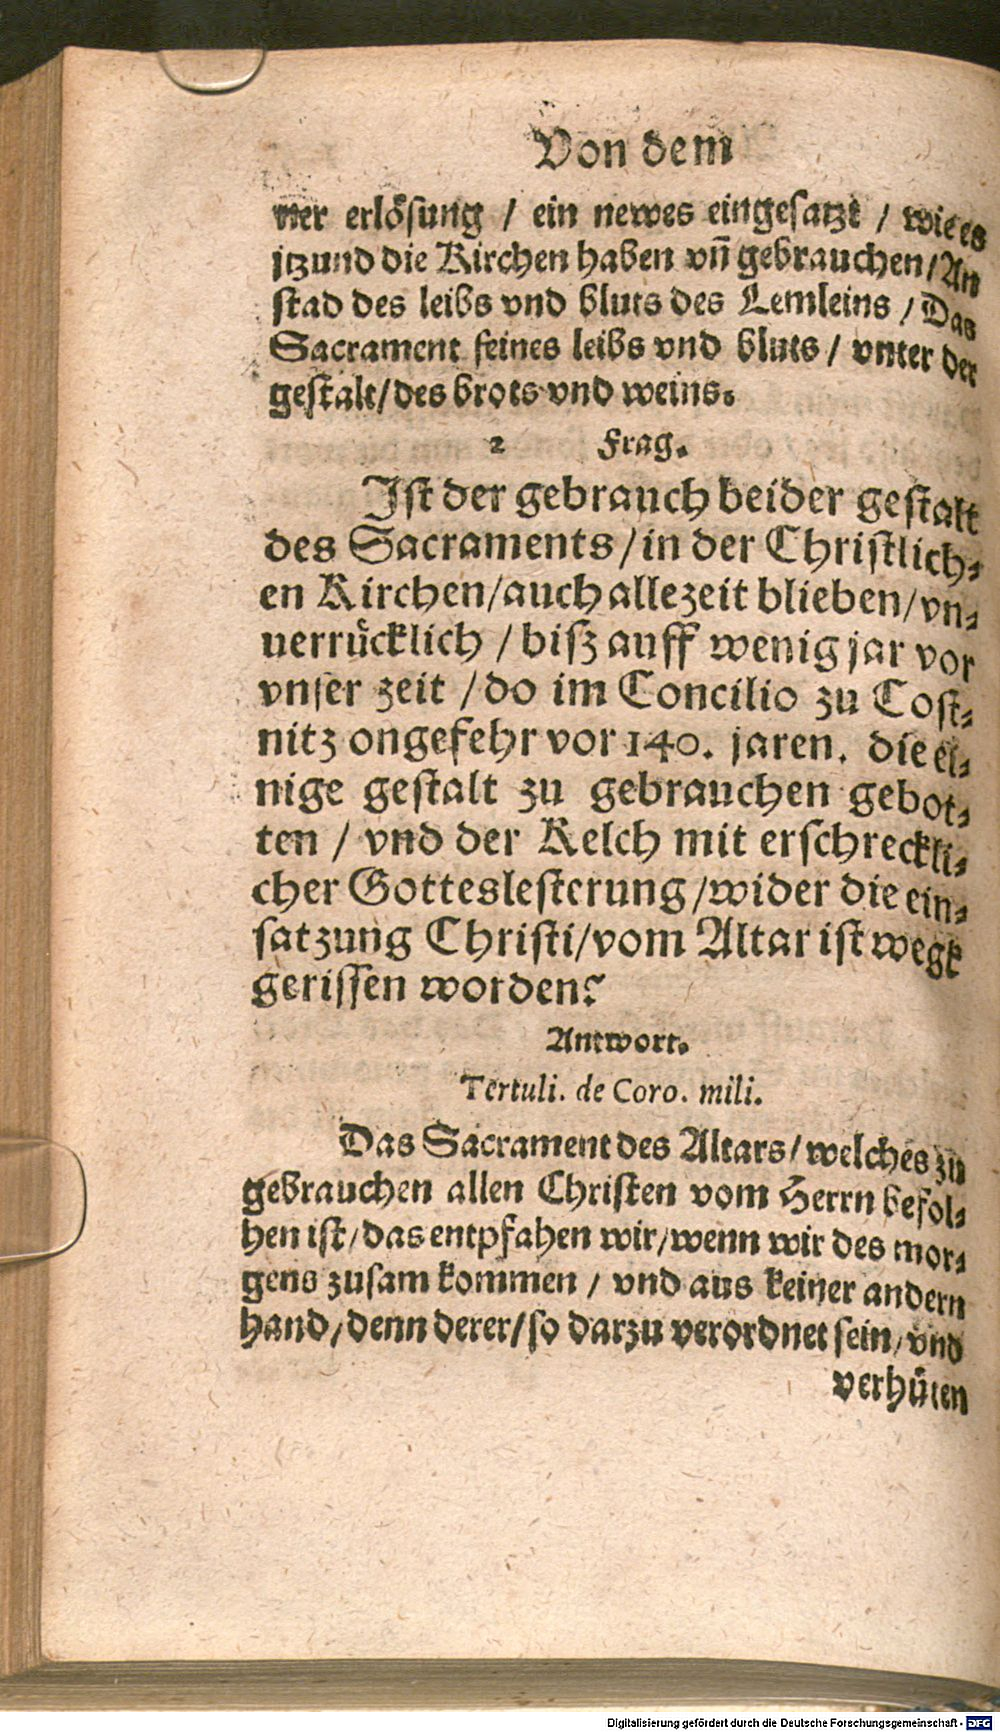 Von dem
ner erlösung / ein newes eingesatzt / wie es
jtzund die Kirchen haben vn̄ gebrauchen / An
stad des leibs vnd bluts des Lemleins / Das
Sacrament seines leibs vnd bluts / vnter der
gestalt / des brots vnd weins.
2 Frag.
Ist der gebrauch beider gestalt
des Sacraments / in der Christlich-
en Kirchen / auch allezeit blieben / vn-
uerrücklich / bisz auff wenig jar vor
vnser zeit / do im Concilio zu Cost-
nitz ongefehr vor 140. jaren. die ei-
nige gestalt zu gebrauchen gebot-
ten / vnd der Kelch mit erschreckli-
cher Gotteslesterung / wider die ein-
satzung Christi / vom Altar ist wegk
gerissen worden?
Antwort.
Tertuli. de Coro. mili.
Das Sacrament des Altars / welches zu
gebrauchen allen Christen vom Herrn befol-
hen ist / das entpfahen wir / wenn wir des mor-
gens zusam kommen / vnd aus keiner andern
hand / denn derer / so darzu verordnet sein / vnd
verhüten
Digitalisierung gefördert durch die Deutsche Forschungsgemeinschaft - DFG